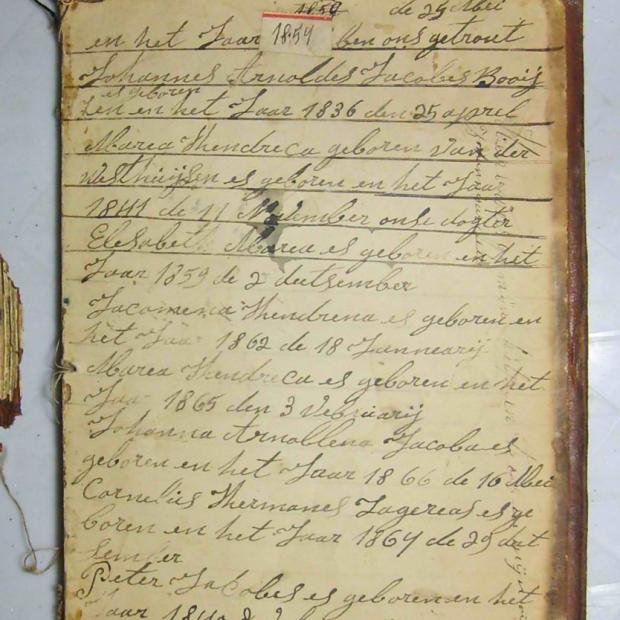 1859 de 29 Mei
1854
en het Jaar ben ons getrout
Johannes Arnoldes Jacobes Booij
es geboren
zen en het Jaar 1836 den 25 april
Marea Hendreca geboren van der
Westhuijsen es geboren en het Jaar
1841 de 11 November onse dogter
Elesabeth Marea es geboren en het
Jaar 1859 de 2 deetsember
Jacomena Hendrena es geboren en
het Jaar 1862 de 18 Janneary
Marea Hendreca es geboren en het
Jaar 1865 den 3 Vebruarij
Johanna Arnollena Jacoba es
geboren en het Jaar 1866 de 16 Mei
Cornelus Hermanes es ge
boren en het Jaar 1867 de 25 det
sember
Peter Jakobes es geboren en het
Jaar